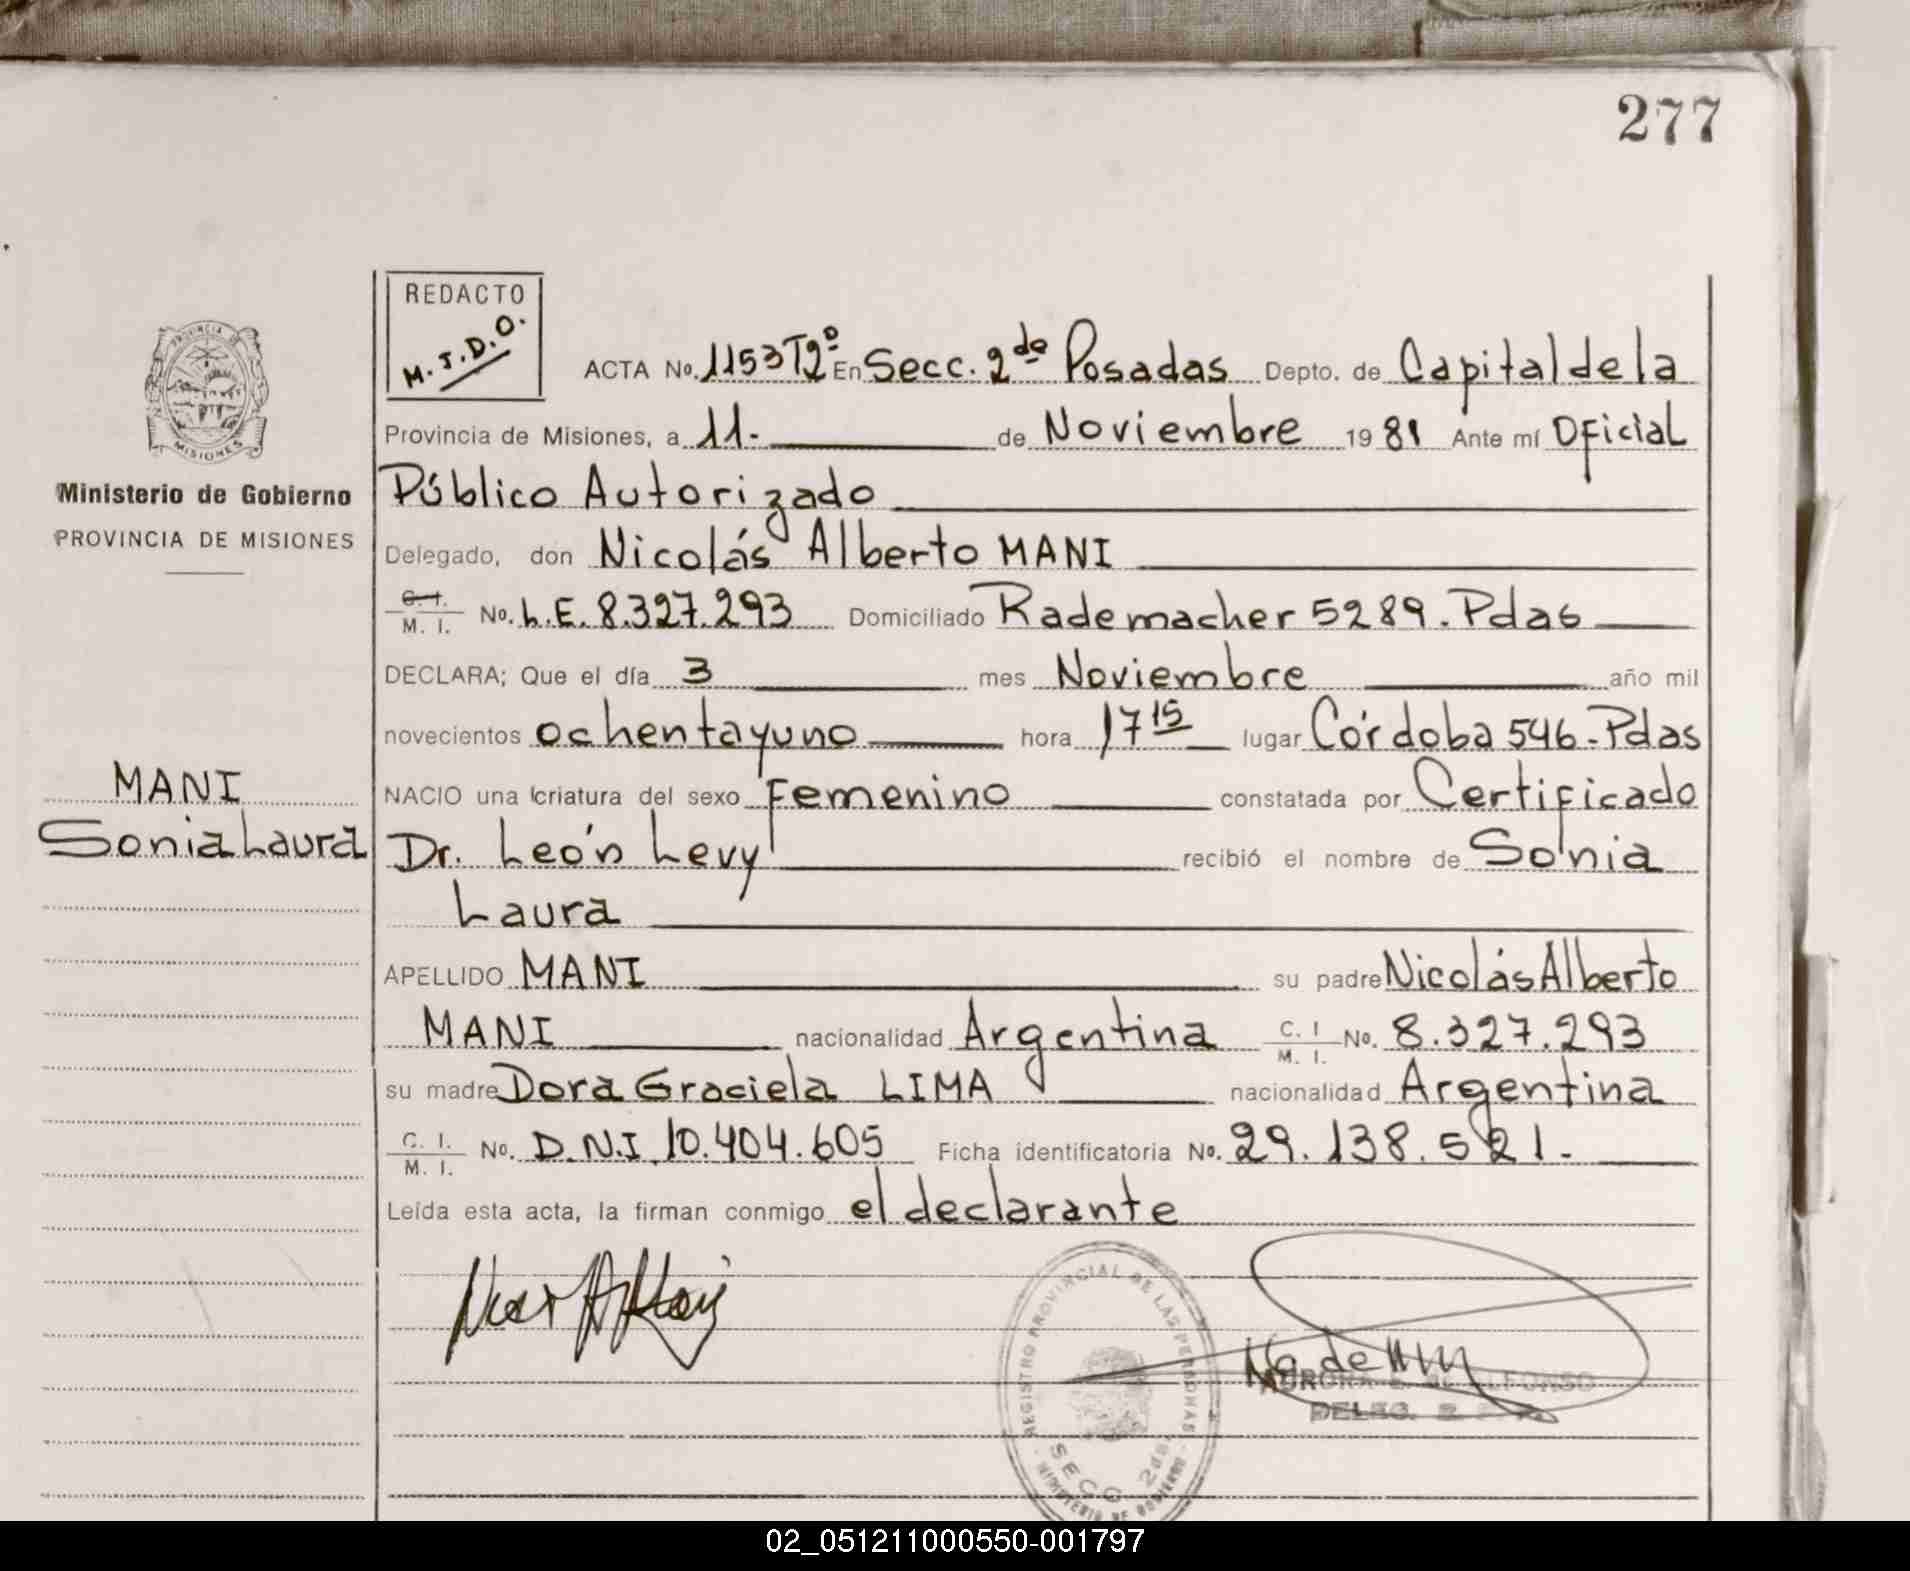 277
REDACTO
M.J.D.O.
PROVINCIA DE
MISIONES
Ministerio de Gobierno
PROVINCIA DE MISIONES
MANI
Sonia Laura
ACTA No. 1153 T2º En Secc. 2da Posadas Depto. de Capital de la
Provincia de Misiones, a 11.- de Noviembre 1981 Ante mí Oficial
Público Autorizado
Delegado, don Nicolás Alberto MANI
C. I. / M. I. No. L.E. 8.327.293 Domiciliado Rademacher 5289. Pdas
DECLARA; Que el día 3 mes Noviembre año mil
novecientos ochentayuno hora 17 15 lugar Córdoba 546-Pdas
NACIO una criatura del sexo Femenino constatada por Certificado
Dr. León Levy recibió el nombre de Sonia
Laura
APELLIDO MANI su padre Nicolás Alberto
MANI nacionalidad Argentina C. I / M. I. No. 8.327.293
su madre Dora Graciela LIMA nacionalidad Argentina
C. I. / M. I. No. D.N.I. 10.404.605 Ficha identificatoria No. 29.138.521.-
Leída esta acta, la firman conmigo el declarante
REGISTRO PROVINCIAL DE LAS PERSONAS
SECC 2da.
MINISTERIO DE GOBIERNO
AURORA ALFONSO
DELEG.
02_051211000550-001797